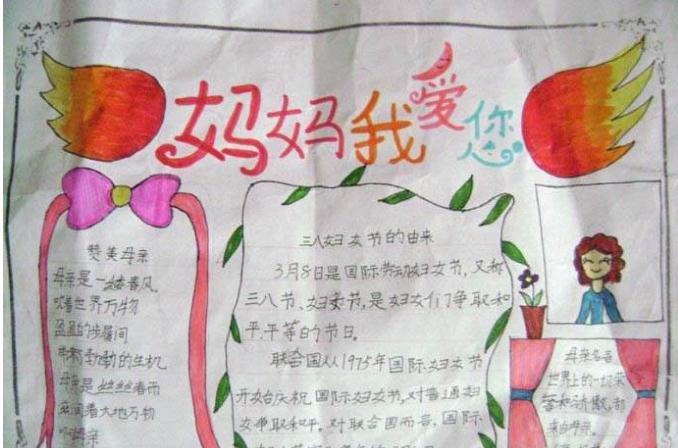 妈妈我爱您
赞美母亲
母亲是一缕春风
吹着世界万物
盈盈的步履间
带着勃勃的生机
母亲是丝丝春雨
滋润着大地万物
三八妇女节的由来
3月8日是国际劳动妇女节,又称
三八节、妇女节,是妇女们争取和
平、平等的节日。
联合国从1975年国际妇女节
开始庆祝国际妇女节,对普通妇
女争取和平,对联合国而言,国际
母亲名言
世界上的一切荣
誉和骄傲,都
来自母亲。